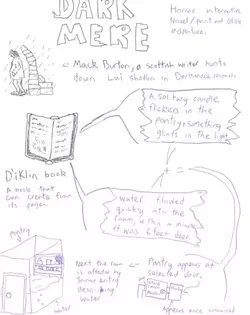 DARK
MERE
Horror interactive
Novel/point and click
adventure.
← Mack Burton, a scottish writer hunts
down
in
A solitary candle
flickers in the
pantry, something
glints in the light
D'iklin book
A book that
can create from
its pages.
Water flowed
quickly into
the room, within a minute
it was 6 feet deep.
pantry
water
Next the room
is affected by
entry
water
← Pantry appears at
selected door.
Appears once summoned